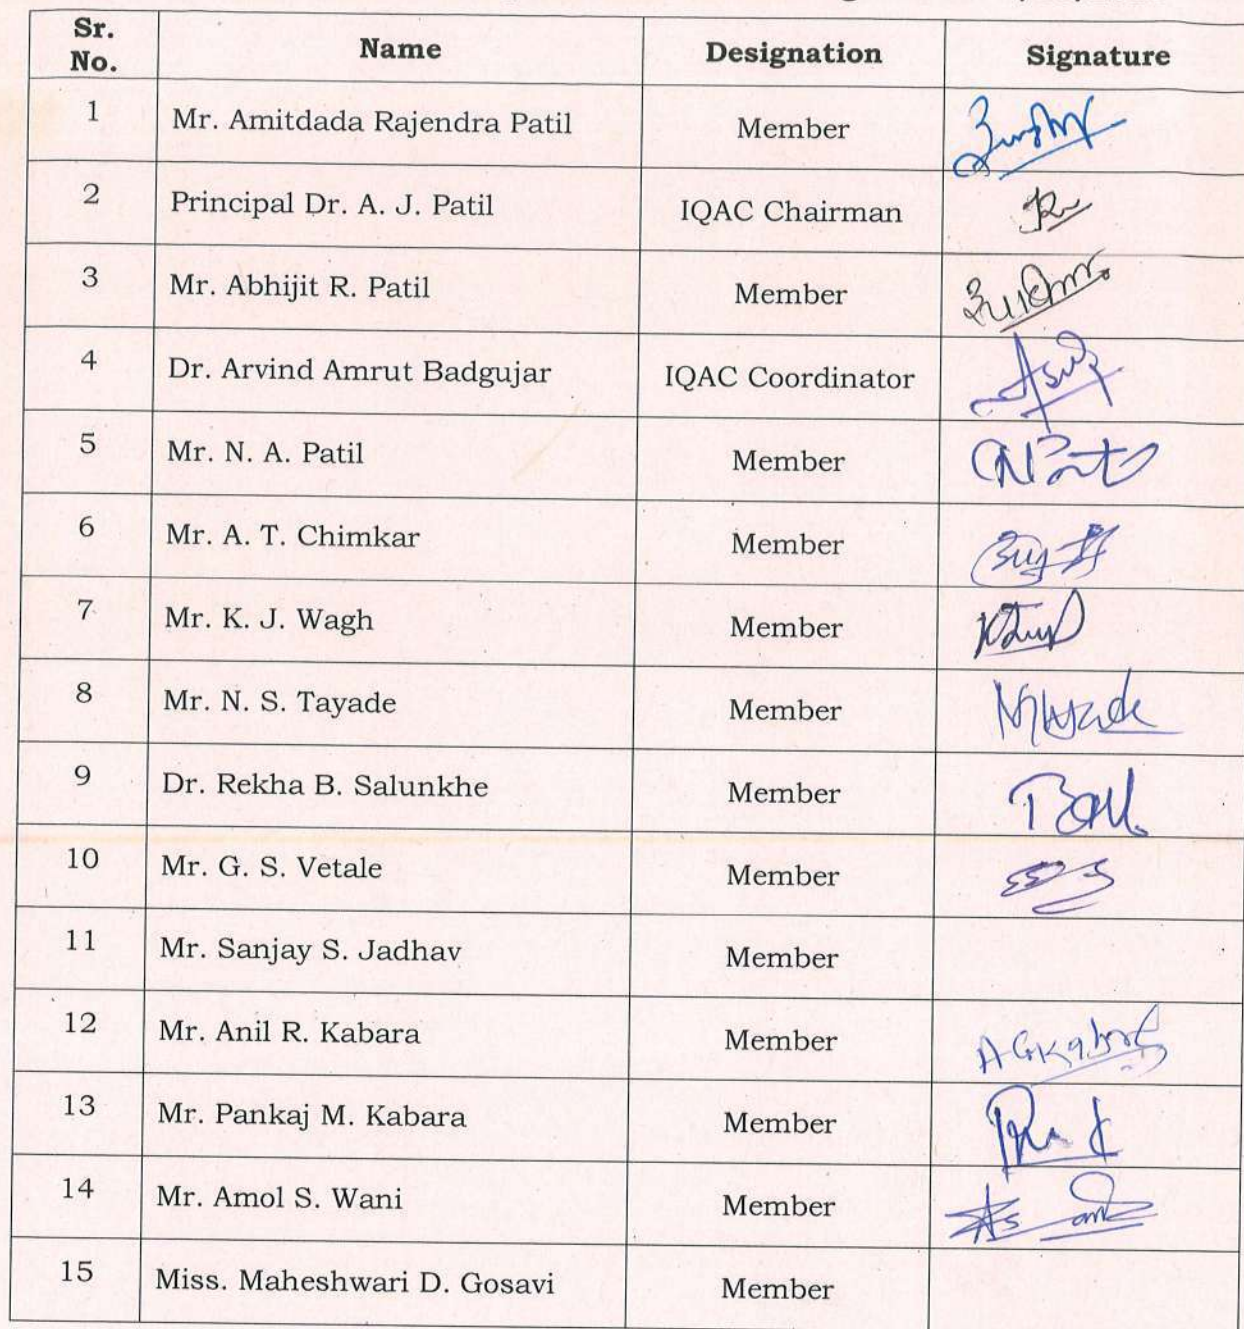 Sr. No. Name Designation Signature
1 Mr. Amitdada Rajendra Patil Member
2 Principal Dr. A. J. Patil IQAC Chairman
3 Mr. Abhijit R. Patil Member
4 Dr. Arvind Amrut Badgujar IQAC Coordinator
5 Mr. N. A. Patil Member
6 Mr. A. T. Chimkar Member
7 Mr. K. J. Wagh Member
8 Mr. N. S. Tayade Member
9 Dr. Rekha B. Salunkhe Member
10 Mr. G. S. Vetale Member
11 Mr. Sanjay S. Jadhav Member
12 Mr. Anil R. Kabara Member
13 Mr. Pankaj M. Kabara Member
14 Mr. Amol S. Wani Member
15 Miss. Maheshwari D. Gosavi Member